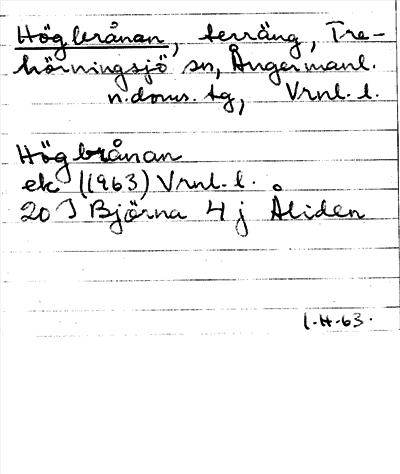 Högbrånan, terräng, Tre-
hörningsjö sn, Ångermanl.
n. doms. tg, Vrnl. l.
Högbrånan
ek (1963) Vrnl. l.
20 J Björna 4 j Åliden
L.H-63.